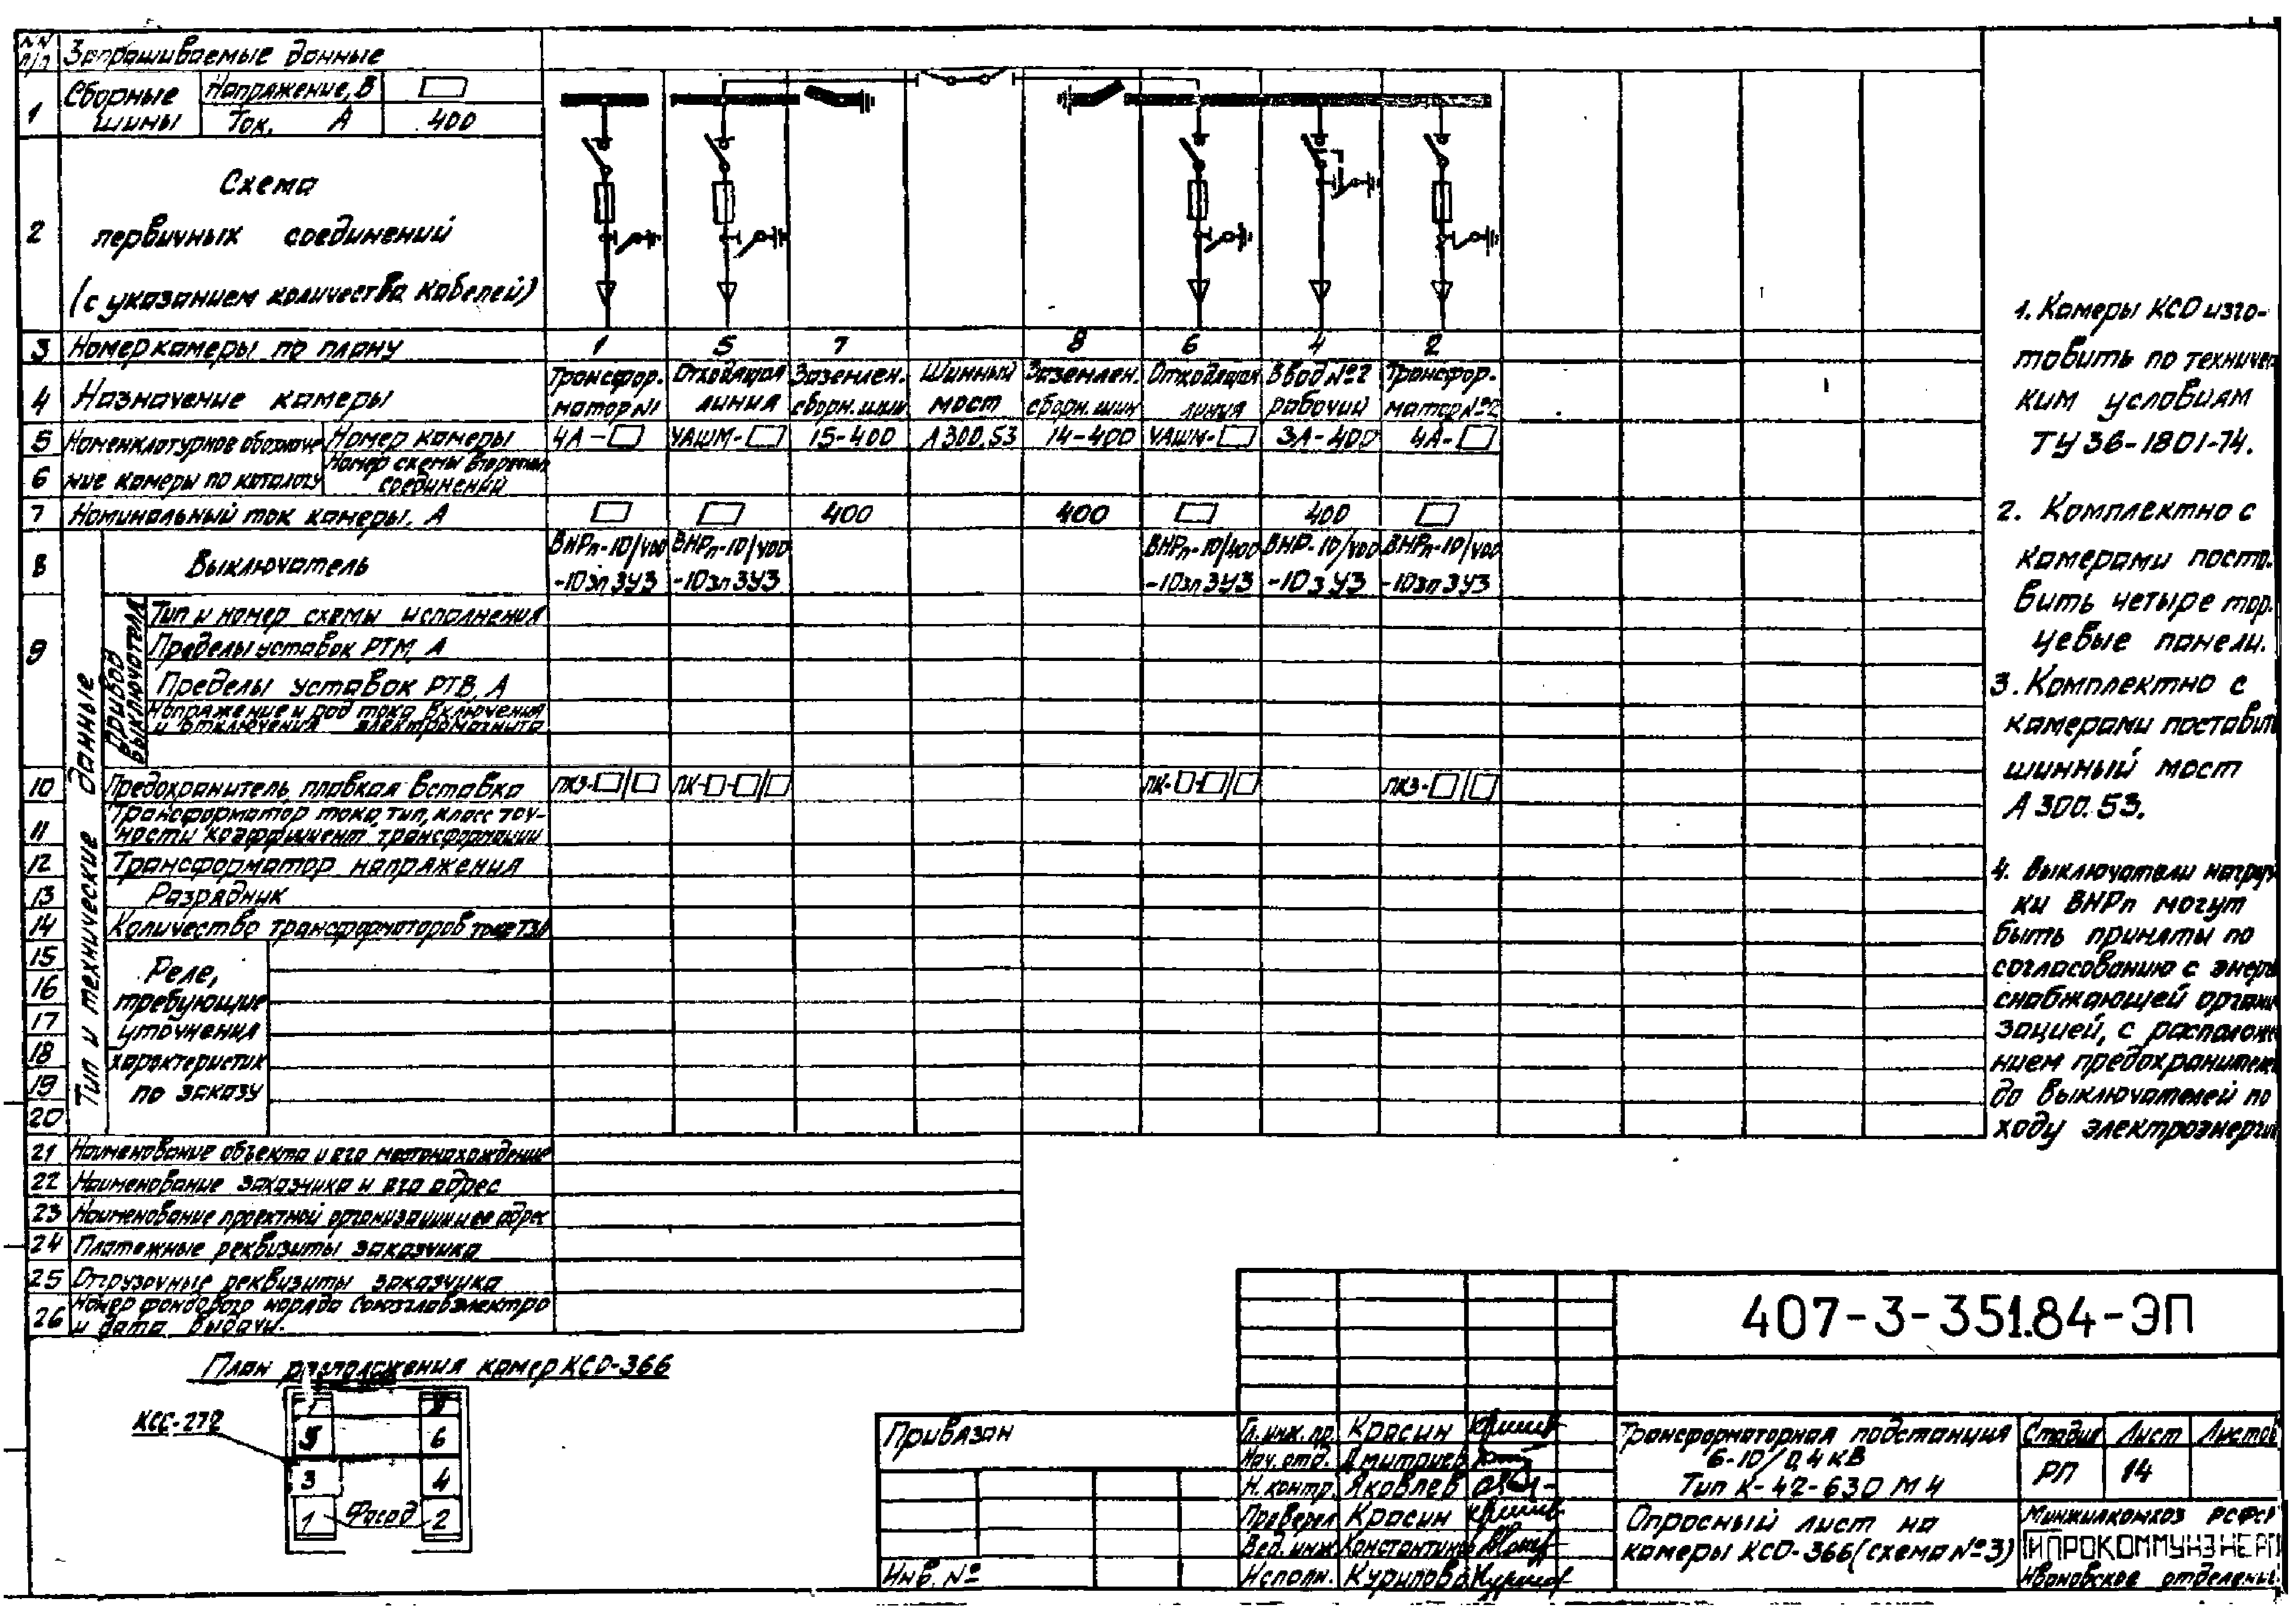 NN Запрашиваемые данные
п/п
1 Сборные шины Напряжение, В
Ток, А 400
2 Схема
первичных соединений
(с указанием количества кабелей)
3 Номер камеры по плану 1 5 7 8 6 4 2
4 Назначение камеры
Трансфор- Отходящая Заземлен. Шинный Заземлен. Отходящая Ввод №2 Трансфор-
матор №1 линия сборн. шин мост сборн. шин линия рабочий матор №2
5 Номенклатурное обозначе Номер камеры 4А-□ УАШМ-□ 15-400 А300.53 14-400 УАШМ-□ 3А-400 4А-□
6 ние камеры по каталогу Номер схемы вторичн. соединений
7 Номинальный ток камеры, А □ □ 400 400 □ 400 □
Тип и технические данные
8 Выключатель
ВНРп-10/400 ВНРп-10/400 ВНРп-10/400 ВНР-10/400 ВНРп-10/400
-10зп3У3 -10зп3У3 -10зп3У3 -10з3У3 -10зп3У3
9 Привод выключателя
Тип и номер схемы исполнения
Пределы уставок РТМ, А
Пределы уставок РТВ, А
Напряжение и род тока включения
и отключения электромагнита
10 Предохранитель, плавкая вставка ПК3-□/□ ПК-□-□/□ ПК-□-□/□ ПК3-□/□
11 Трансформатор тока, тип, класс точ-
ности коэффициент трансформации
12 Трансформатор напряжения
13 Разрядник
14 Количество трансформаторов тока ТЗЛ
15 Реле,
16 требующие
17 уточнения
18 характеристик
19 по заказу
20
21 Наименование объекта и его местонахождение
22 Наименование заказчика и его адрес
23 Наименование проектной организации и ее адрес
24 Платежные реквизиты заказчика
25 Отгрузочные реквизиты заказчика
26 Номер фондового наряда Союзглавэлектро
и дата выдачи.
1. Камеры КСО изго-
товить по техничес
ким условиям
ТУ 36-1801-74.
2. Комплектно с
камерами поста-
вить четыре тор-
цевые панели.
3. Комплектно с
камерами поставить
шинный мост
А 300.53.
4. Выключатели нагруз
ки ВНРп могут
быть приняты по
согласованию с энерго
снабжающей органи
зацией, с расположе
нием предохранителей
до выключателей по
ходу электроэнергии
План расположения камер КСО-366
КСС-272
5 6
3 4
1 Фасад 2
407-3-351.84-ЭП
Привязан
Инв. №
Гл. инж. пр. Красин
Нач. отд. Дмитриев
Н. контр. Яковлев
Проверил Красин
Вед. инж Константинов
Исполн. Курилова
Трансформаторная подстанция
6-10/0,4 кВ
Тип К-42-630 М4
Стадия Лист Листов
РП 14
Опросный лист на
камеры КСО-366 (схема №3)
Минжилкомхоз РСФСР
ГИПРОКОММУНЭНЕРГО
Ивановское отделение